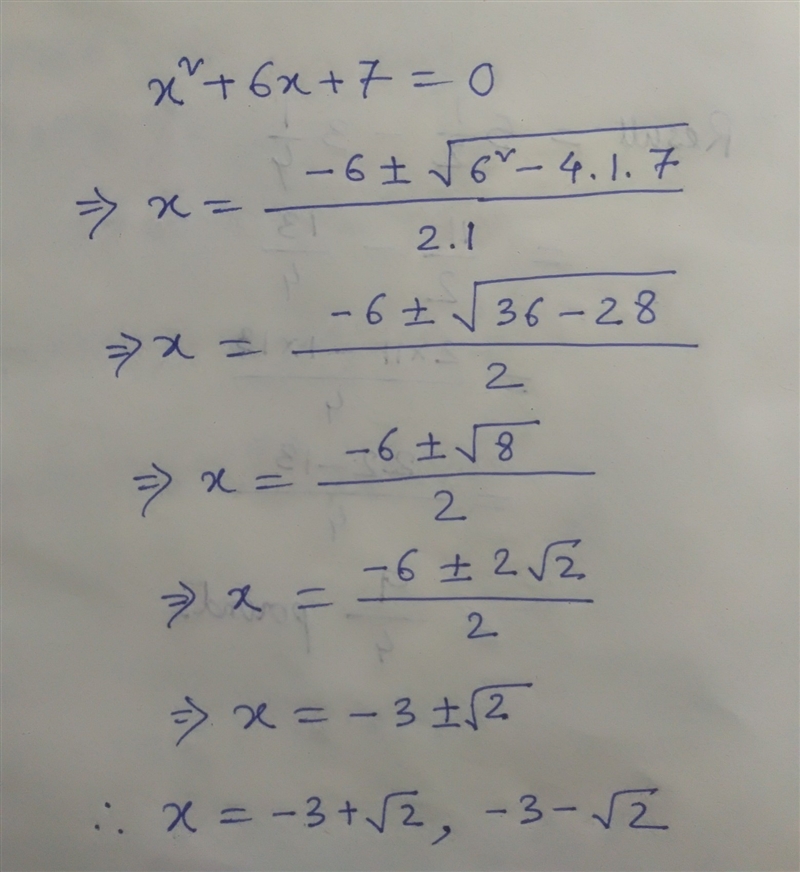 x² + 6x + 7 = 0
⇒ x = (-6 ± √(6² - 4.1.7)) / 2.1
⇒ x = (-6 ± √(36 - 28)) / 2
⇒ x = (-6 ± √8) / 2
⇒ x = (-6 ± 2√2) / 2
⇒ x = -3 ± √2
∴ x = -3 + √2, -3 - √2